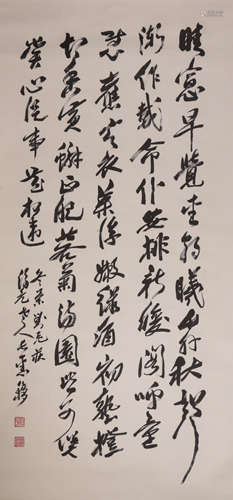 晴窗早覺愛朝曦竹外秋聲
漸作威命仆安排新暖閣呼童
熨舊寒衣葉浮嫩綠酒初熟橙
切香黃蟹正肥蓉菊滿園皆可羨
賞心從事莫相違
冬景劉克莊
老人